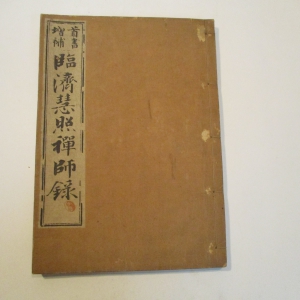 首書
增補
臨濟慧照禪師錄